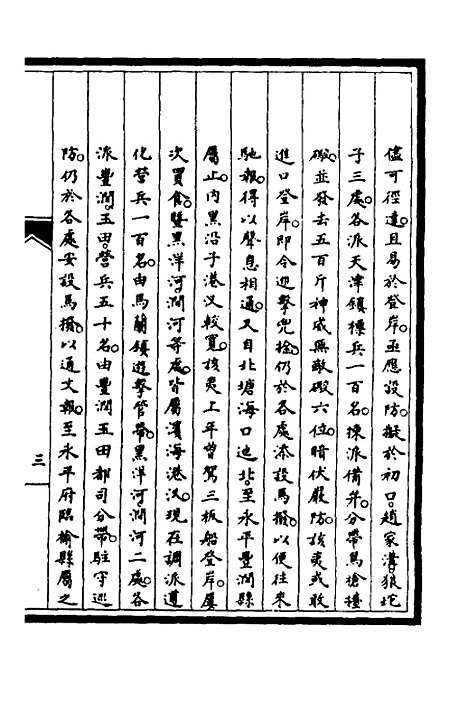 儘可徑達。且易於登岸。亟應設防。擬於初口。趙家溝狼坨
子三處。各派天津鎮標兵一百名。揀派備弁分帶馬槍擡
礮。並發去五百斤神威無敵礮六位。暗伏嚴防。該夷或敢
進口登岸。即令迎擊兜捦。仍於各處添設馬撥。以便往來
馳報。得以聲息相通。又自北塘海口迤北。至永平豐潤縣
屬止。內黑沿子港汊較寬。該夷上年曾駕三板船登岸。屢
次買食。暨黑洋河澗河等處。皆屬濱海港汊。現在調派遵
化營兵一百名。由馬蘭鎮遊擊管帶。黑洋河澗河二處。各
派豐潤。玉田。營兵五十名。由豐潤玉田都司分帶。駐守巡
防。仍於各處安設馬撥。以通文報。至永平府臨榆縣屬之
三